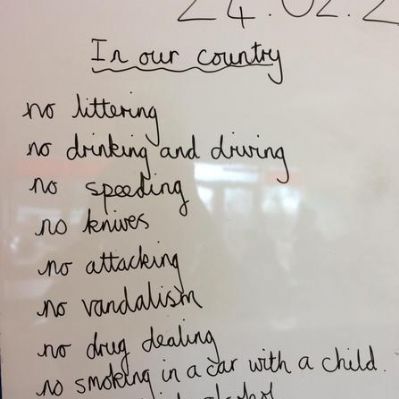 24.02.2
In our country
no littering
no drinking and driving
no speeding
no knives
no attacking
no vandalism
no drug dealing
no smoking in a car with a child.
alcohol